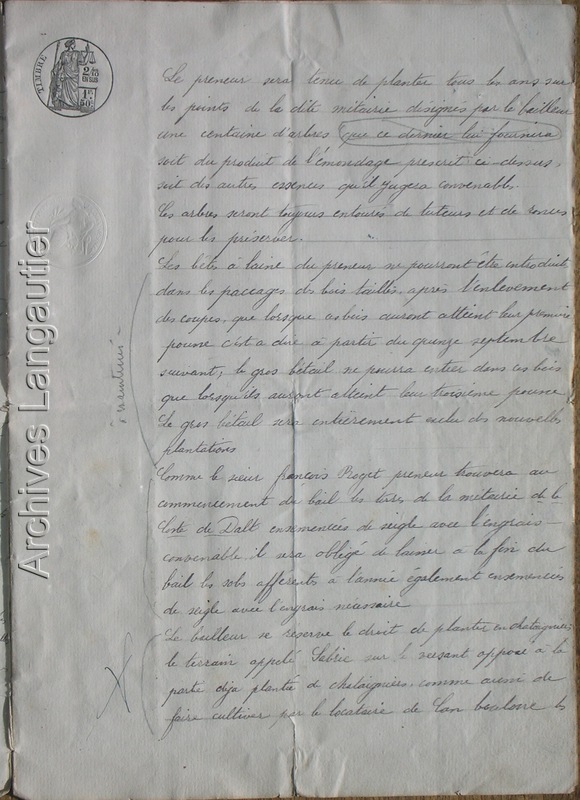 TIMBRE
2/10 EN SUS
1F 50C
Le preneur sera tenu de planter tous les ans sur
les points de la dite métairie désignés par le bailleur
une centaine d'arbres que ce dernier lui fournira
soit du produit de l'émondage prescrit ci-dessus,
soit des autres essences qu'il jugera convenable.
Les arbres seront toujours entourés de tuteurs et de ronces
pour les préserver.
Les bêtes à laine du preneur ne pourront être introduites
dans les paccages des bois taillés, après l'enlèvement
des coupes, que lorsque ces bois auront atteint leur première
pousse c'est à dire à partir du quinze septembre
suivant, le gros bétail ne pourra entrer dans ces bois
que lorsqu'ils auront atteint leur troisième pousse
Le gros bétail sera entièrement exclu des nouvelles
plantations
Comme le sieur françois Roget preneur trouvera au
commencement du bail les terres de la métairie de la
Coste de Dalt ensemencées de seigle avec l'engrais
convenable il sera obligé de laisser à la fin du
bail les sols afférents à l'année également ensemencés
de seigle avec l'engrais nécessaire
Le bailleur se réserve le droit de planter en chataigniers
le terrain appelé Sabrie sur le versant opposé à la
partie déja plantée de chataigniers, comme aussi de
faire cultiver par le locataire de Can les
Archives Langautier